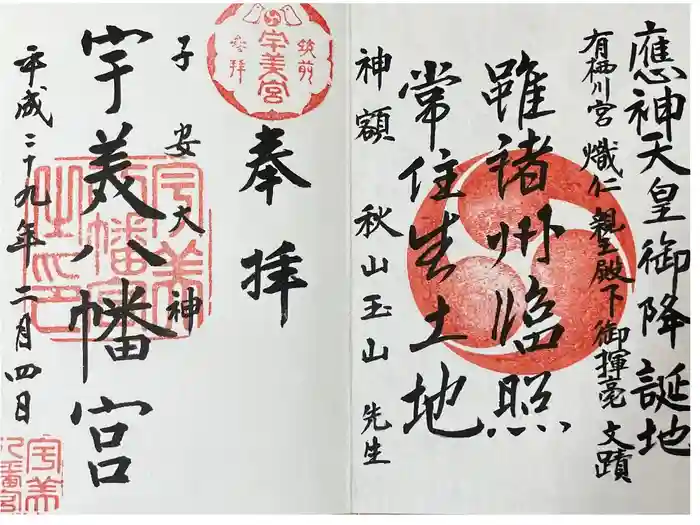 應神天皇御降誕地
有栖川宮 熾仁 親王殿下 御揮亳 文蹟
雖諸州臨照
常住生土地
神額 秋山玉山 先生
筑前
宇美宮
参拝
奉拝
子安大神
宇美八幡宮
平成二十九年二月四日
宇美
八幡宮